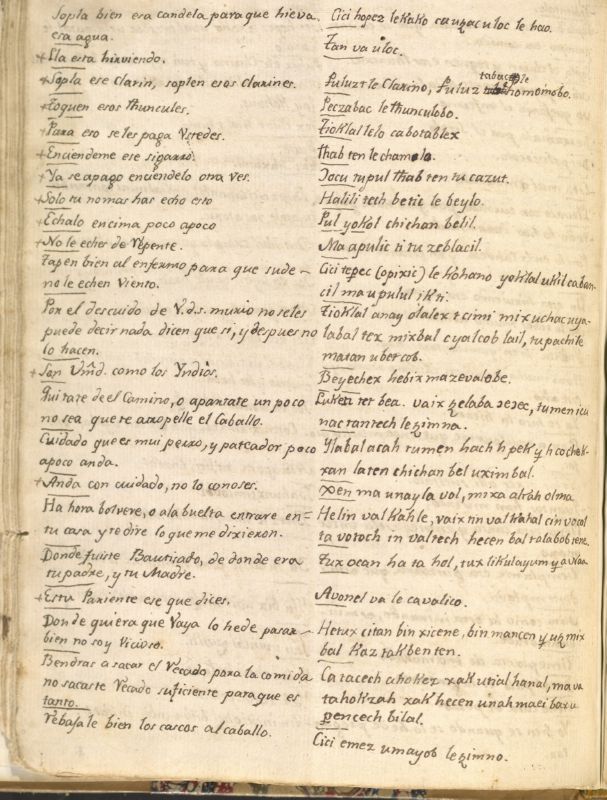 Sopla bien esa candela para que hieva
esa agua.
+Ella esta hirviendo.
+Sopla ese Clarin, soplen esos Clarines.
+Toquen esos thuncules.
+Para eso se les paga Vstedes.
+Enciendeme ese sigarro.
+Ya se apago enciendelo otra ves.
+Solo tu nomas has echo esto
+Echalo encima poco apoco
+No le eches de Vepente.
Tapen bien al enfermo para que sude
no le echen Viento.
Por el descuido de V.d.s. murio no se les
puede decir nada dicen que si, y despues no
lo hacen.
+Son Vm̃d. como los Yndios.
Quitate de el Camino, o apartate un poco
no sea que te atropelle el Caballo.
Cuidado que es mui perro, y pateador poco
apoco anda.
+Anda con cuidado, no lo conoses.
Ha hora bolvere, o ala buelta entrare en=
tu casa y te dire lo que me dixieron.
Donde fuiste Bautizado, de donde era
tu padre, y tu Madre.
+Es tu Pariente ese que dices.
Donde quiera que Vaya lo hede pasar
bien no soy Vicioso.
Bendras a sacar el Vecado para la comida
no sacaste Vecado suficiente para que es
tanto.
Vebajale bien los cascos al caballo.
Cici hopez le kako ca uzac u loc le hao.
Tan va u loc.
Puluzt le Clarino, Puluz tabac le homomobo.
Peczabac le thunculobo.
Tioklal lelo ca botablex
thab ten le chamalo.
Tocu tupul thab ten tu cazut.
Halili tech betic le beylo.
Pul yokol chichan belil.
Ma apulic ti tu zeblacil.
Cici tepec (opixic) le kohano yoklal ukil caban
cil ma upulul ik ti.
Tioklal anay olalex t cimi mix uchac uya-
labal tex mixbal c yalcob lail, tu pachile
matan u betcob.
Beyechex hebix mazevalobe.
Luken ter bea. vaix zelaba xexec, tumen icu
nac tantech le zimna.
Ylabal acah tumen hach h pek y h cochek-
xan la ten chichan bel uximbal.
Xen ma unayla vol, mixa alcah olma
Helin val kahle, vaix tin val kahal cin vocol
ta votoch in valtech hecen bal t alabob tene.
Tux ocan ha ta hol, tux likul a yum y a Naa
A vonel va le ca valico.
Hetux citan bin xicene, bin mancen y utz mix
bal kaz tak benten.
Ca tacech a hokez xak utial hanal, ma va
ta hokzah xak hecen unah maci baxu
pencech bilal.
Cici emez u mayob le zimno.